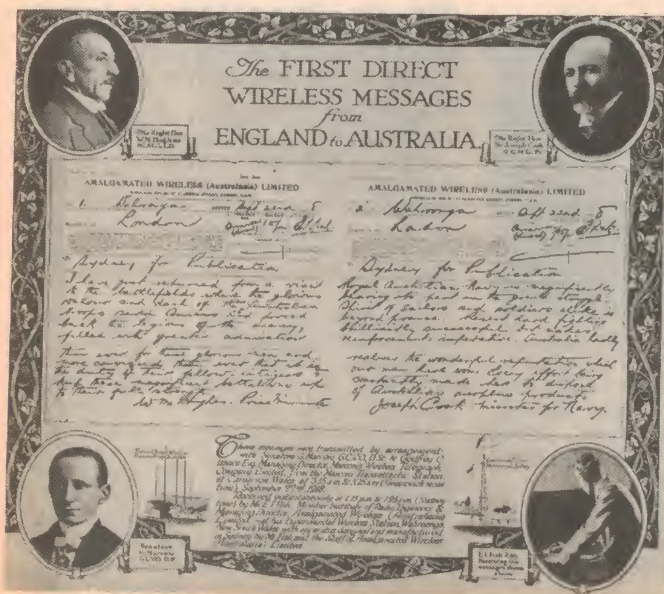 The FIRST DIRECT
WIRELESS MESSAGES
from
ENGLAND to AUSTRALIA
The Right Hon
W.M. Hughes
The Right Hon
Sir Joseph Cook
AMALGAMATED WIRELESS (Australasia) LIMITED
1. Wahroonga Sept 22nd 8
London
Sydney for Publication
I have just returned from a visit
to the battlefields where the glorious
valour and dash of the Australian
troops saved Amiens and forced
back the legions of the enemy,
filled with greater admiration
than ever for these glorious men and
more convinced than ever that it is
the duty of their fellow citizens to
keep these magnificent battalions up
to their full strength.
W. M. Hughes. Prime Minister
AMALGAMATED WIRELESS (Australasia) LIMITED
2 Wahroonga Sept 22nd 8
London
Sydney for Publication
Royal Australian Navy is magnificently
bearing its part in the great struggle.
Spirit of sailors and soldiers alike is
beyond praise. Recent hard fighting
brilliantly successful but makes
reinforcements imperative. Australia hardly
realises the wonderful reputation which
our men have won. Every effort being
constantly made here to dispose
of Australian surplus products
Joseph Cook Minister for Navy.
These messages were transmitted by arrangement
with Senatore G. Marconi G.C.V.O. D.Sc & Godfrey C
Isaacs Esq. Managing Director Marconi's Wireless Telegraph
Company Limited, from the Marconi Transatlantic Station
at Carnarvon Wales at 3.15 a.m & 3.25 a.m (Greenwich mean
time), September 22nd 1918
(Sydney
time) by Mr. E.T. Fisk, Member Institute of Radio Engineers &
Managing Director, Amalgamated Wireless (Australasia)
Limited at his Experimental Wireless Station, Wahroonga
New South Wales with apparatus designed and manufactured
in Sydney by Mr Fisk and the Staff of Amalgamated Wireless
Limited
Senatore
G. Marconi
G.C.V.O.
E.T. Fisk Esq.
Receiving the
messages